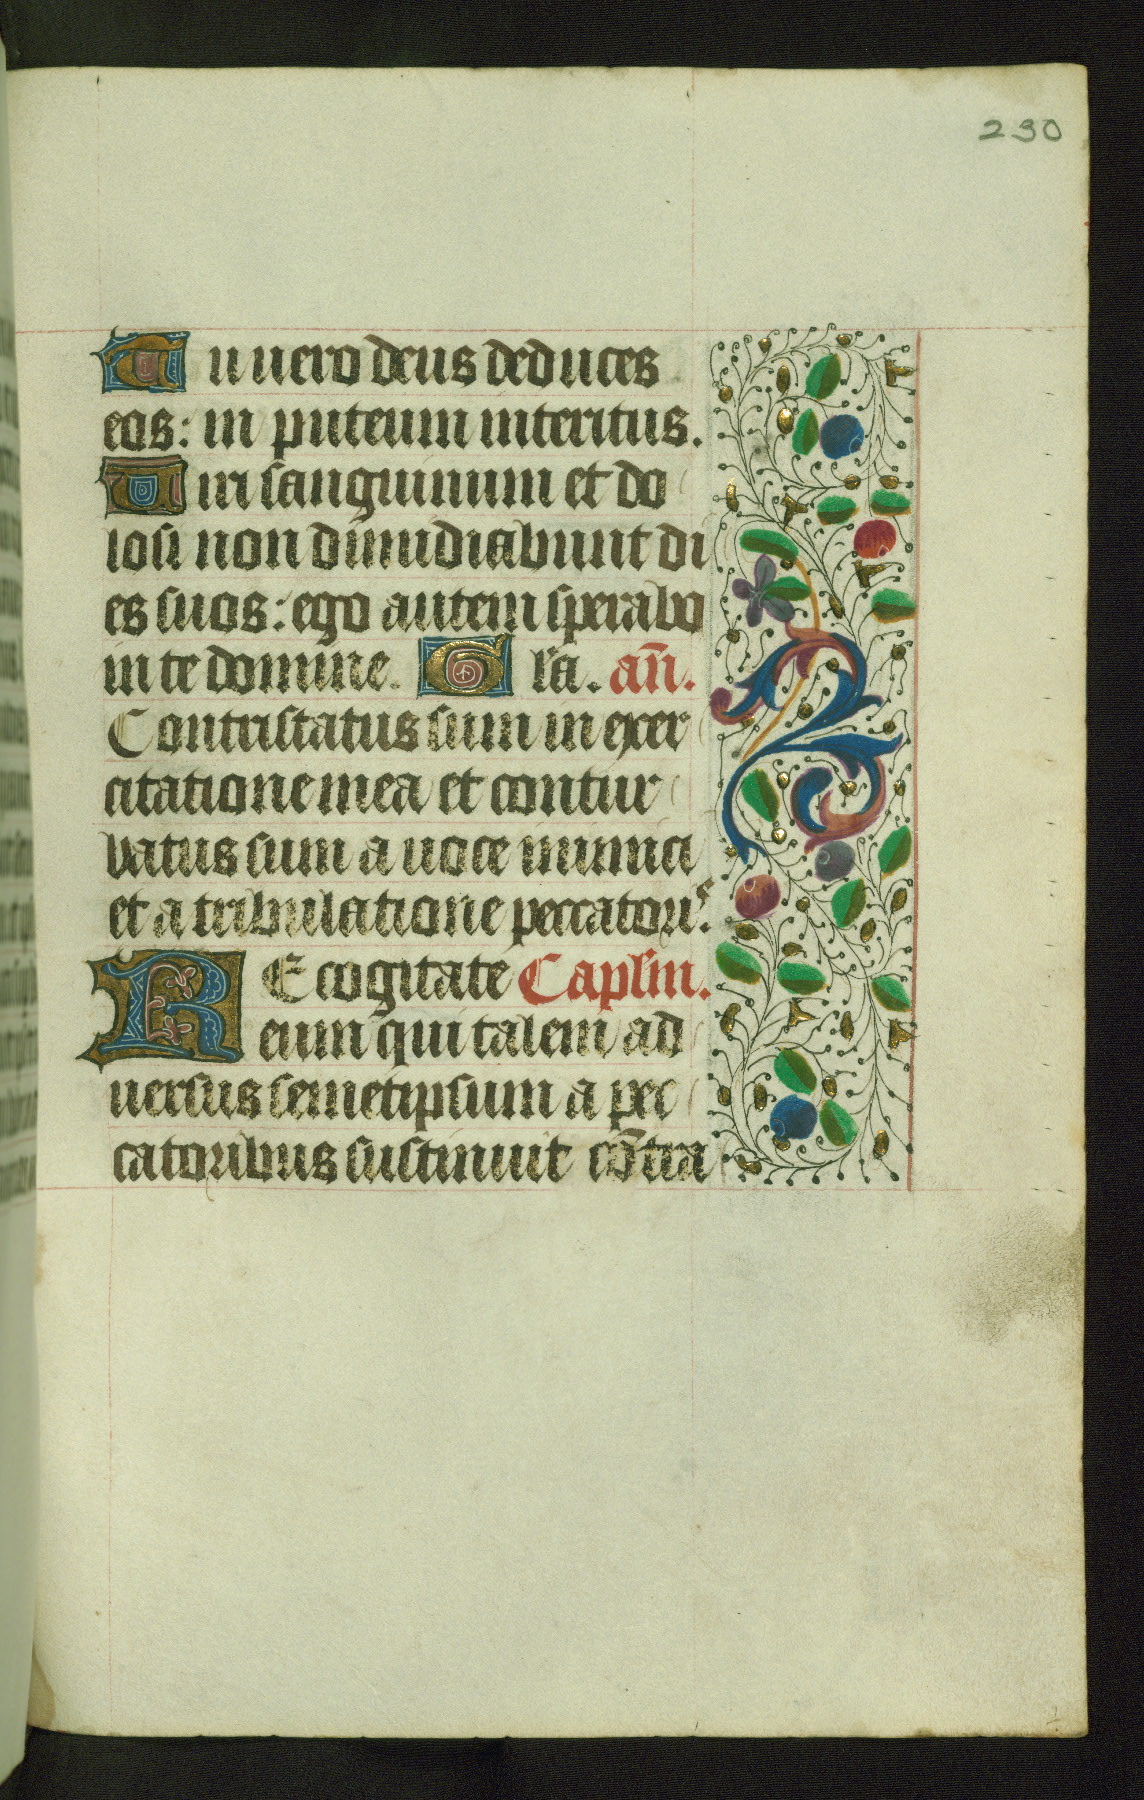 230
Tu uero deus deduces
eos: in puteum interitus.
Uiri sanguinum et do
losi non dimidiabunt di
es suos: ego autem sperabo
in te domine. Gl'a. an̄.
Contristatus sum in exer
citatione mea et contur
batus sum a uoce inimici
et a tribulatione peccatoris
REcogitate Caplm.
eum qui talem ad
uersus semetipsum a pec
catoribus sustinuit cōtra